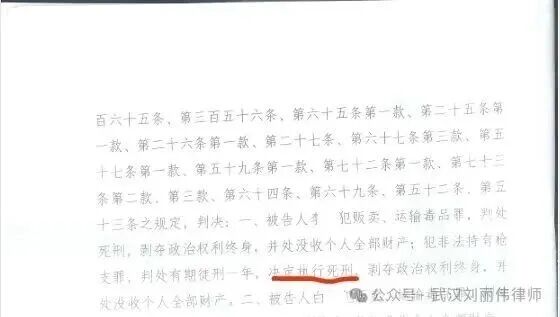 百六十五条、第三百五十六条、第六十五条第一款、第二十五条第
一款、第二十六条第一款、第二十七条、第六十七条第三款、第五
十七条第一款、第五十九条第一款、第七十二条第一款、第七十三
条第二款、第三款、第六十四条、第六十九条、第五十二条、第五
十三条之规定，判决：一、被告人李 犯贩卖、运输毒品罪，判处
死刑，剥夺政治权利终身，并处没收个人全部财产；犯非法持有枪
支罪，判处有期徒刑一年，决定执行死刑，剥夺政治权利终身，并
处没收个人全部财产。二、被告人白
公众号·武汉刘丽伟律师